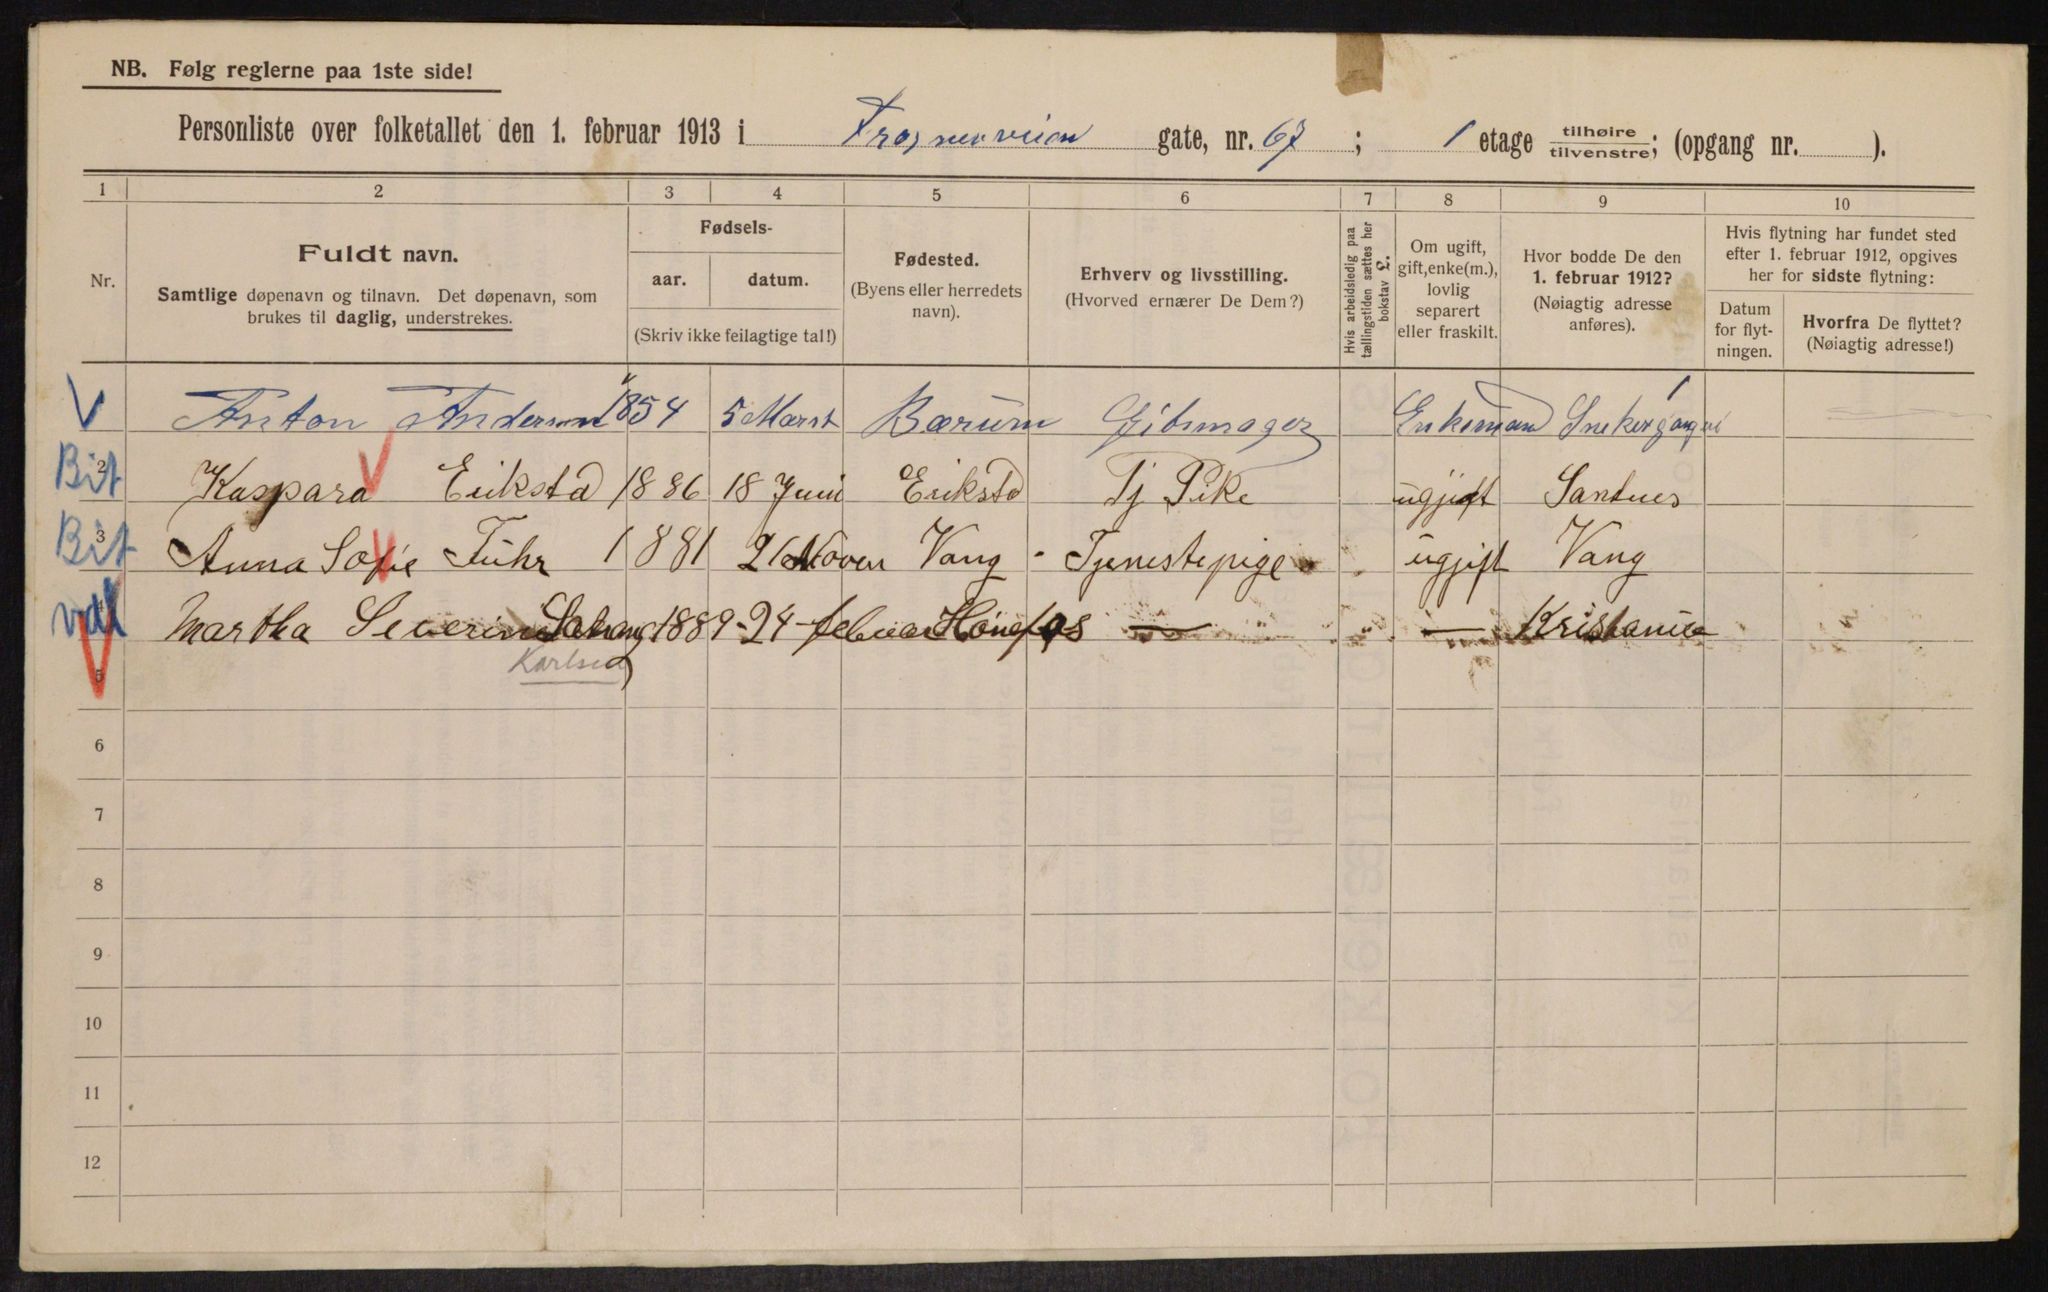 NB. Følg reglerne paa 1ste side!
Personliste over folketallet den 1. februar 1913 i Frognerveien gate, nr. 67; 1 etage tilhøire tilvenstre; (opgang nr. ).
1 2 3 4 5 6 7 8 9 10
Nr.
Fuldt navn.
Samtlige døpenavn og tilnavn. Det døpenavn, som
brukes til daglig, understrekes.
Fødsels-
aar. datum.
(Skriv ikke feilagtige tal!)
Fødested.
(Byens eller herredets
navn).
Erhverv og livsstilling.
(Hvorved ernærer De Dem?)
Hvis arbeidsledig paa
tællingstiden sættes her
bokstav L.
Om ugift,
gift, enke(m.),
lovlig
separert
eller fraskilt.
Hvor bodde De den
1. februar 1912?
(Nøiagtig adresse
anføres).
Hvis flytning har fundet sted
efter 1. februar 1912, opgives
her for sidste flytning:
Datum
for flyt-
ningen.
Hvorfra De flyttet?
(Nøiagtig adresse!)
Anton Andersen 1854 5 Marst Bærum Gibsmager Enkemand
Bit 2 Kaspara Erikstad 1886 18 Juni Erikstd Tj Pike ugjift
Bit 3 Anna Sofie Fuhr 1881 21 Noven Vang - Tjenestepige ugjift Vang
4 Martha 1889 - 24 - februar Hönefos — — Kristania
Karlsen
5
6
7
8
9
10
11
12